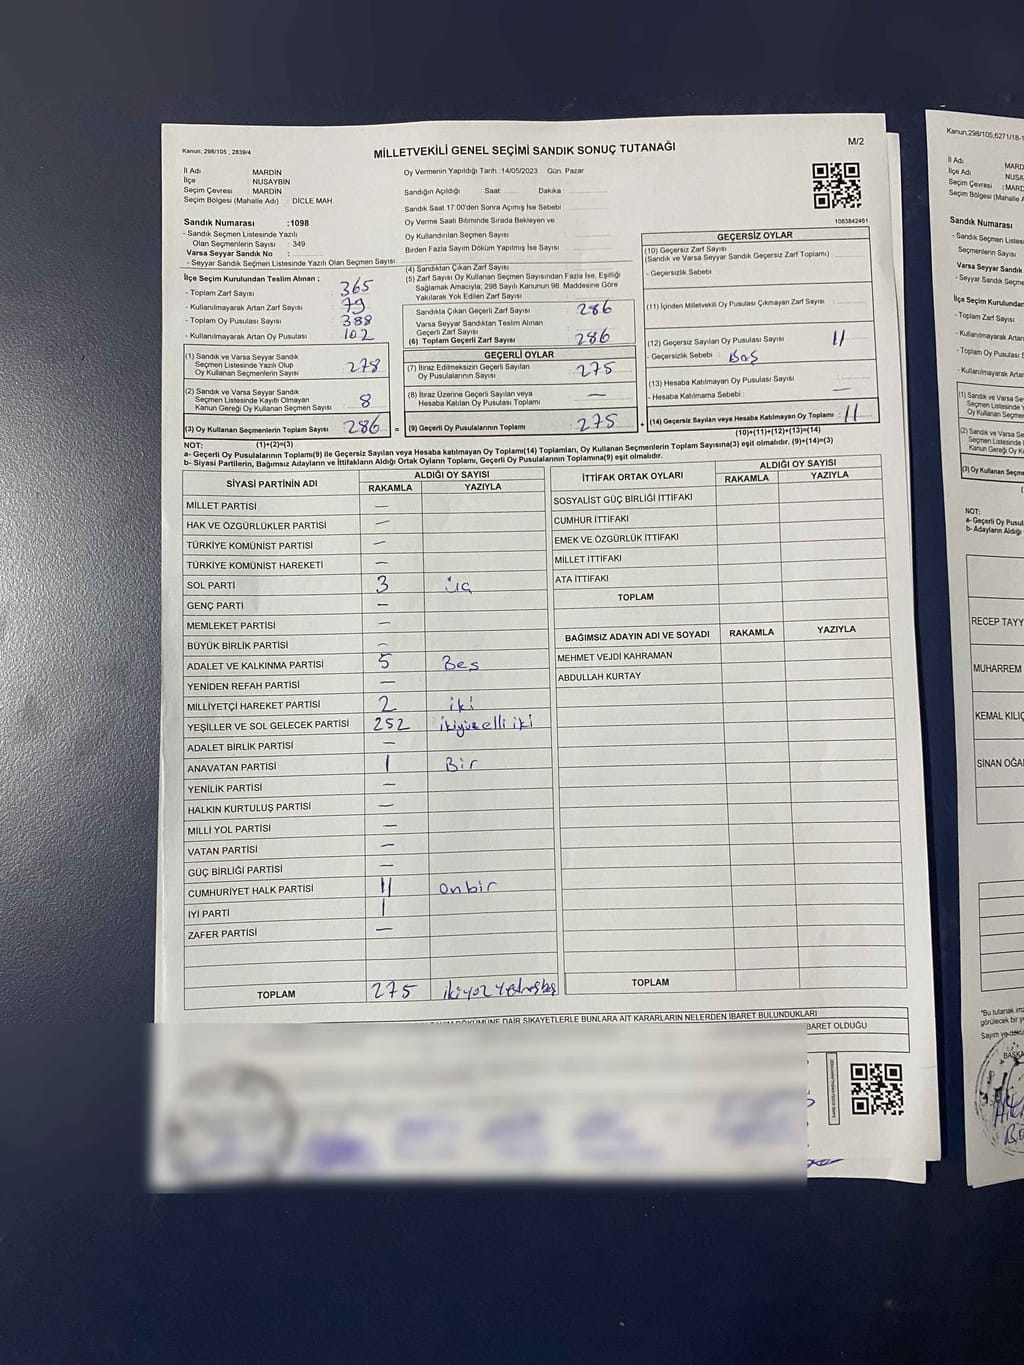 Kanun; 298/105 , 2839/4
MİLLETVEKİLİ GENEL SEÇİMİ SANDIK SONUÇ TUTANAĞI
M/2
İl Adı : MARDİN
İlçe : NUSAYBİN
Seçim Çevresi : MARDİN
Seçim Bölgesi (Mahalle Adı) : DİCLE MAH.
Oy Vermenin Yapıldığı Tarih :14/05/2023 Gün: Pazar
Sandığın Açıldığı Saat: Dakika:
Sandık Saat 17:00'den Sonra Açımış İse Sebebi
Oy Verme Saati Bitiminde Sırada Bekleyen ve
Oy Kullandırılan Seçmen Sayısı
Birden Fazla Sayım Döküm Yapılmış İse Sayısı
1083842461
Sandık Numarası :1098
- Sandık Seçmen Listesinde Yazılı
Olan Seçmenlerin Sayısı : 349
Varsa Seyyar Sandık No :
- Seyyar Sandık Seçmen Listesinde Yazılı Olan Seçmen Sayısı:
İlçe Seçim Kurulundan Teslim Alınan ;
- Toplam Zarf Sayısı 365
- Kullanılmayarak Artan Zarf Sayısı 79
- Toplam Oy Pusulası Sayısı 388
- Kullanılmayarak Artan Oy Pusulası 102
(1) Sandık ve Varsa Seyyar Sandık
Seçmen Listesinde Yazılı Olup
Oy Kullanan Seçmenlerin Sayısı 278
(2) Sandık ve Varsa Seyyar Sandık
Seçmen Listesinde Kayıtlı Olmayan
Kanun Gereği Oy Kullanan Seçmen Sayısı 8
(3) Oy Kullanan Seçmenlerin Toplam Sayısı 286 =
(4) Sandıktan Çıkan Zarf Sayısı
(5) Zarf Sayısı Oy Kullanan Seçmen Sayısından Fazla İse, Eşitliği
Sağlamak Amacıyla; 298 Sayılı Kanunun 98. Maddesine Göre
Yakılarak Yok Edilen Zarf Sayısı
Sandıkta Çıkan Geçerli Zarf Sayısı 286
Varsa Seyyar Sandıktan Teslim Alınan
Geçerli Zarf Sayısı
(6) Toplam Geçerli Zarf Sayısı 286
GEÇERLİ OYLAR
(7) İtiraz Edilmeksizin Geçerli Sayılan
Oy Pusulalarının Sayısı 275
(8) İtiraz Üzerine Geçerli Sayılan veya
Hesaba Katılan Oy Pusulası Toplamı —
(9) Geçerli Oy Pusulalarının Toplamı 275 +
GEÇERSİZ OYLAR
(10) Geçersiz Zarf Sayısı
(Sandık ve Varsa Seyyar Sandık Geçersiz Zarf Toplamı)
- Geçersizlik Sebebi :
(11) İçinden Milletvekili Oy Pusulası Çıkmayan Zarf Sayısı
(12) Geçersiz Sayılan Oy Pusulası Sayısı 11
- Geçersizlik Sebebi : Boş
(13) Hesaba Katılmayan Oy Pusulası Sayısı —
- Hesaba Katılmama Sebebi :
(14) Geçersiz Sayılan veya Hesaba Katılmayan Oy Toplamı 11
NOT: (1)+(2)=(3)
(10)+(11)+(12)+(13)=(14)
a- Geçerli Oy Pusulalarının Toplamı(9) ile Geçersiz Sayılan veya Hesaba katılmayan Oy Toplamı(14) Toplamları, Oy Kullanan Seçmenlerin Toplam Sayısına(3) eşit olmalıdır. (9)+(14)=(3)
b- Siyasi Partilerin, Bağımsız Adayların ve İttifakların Aldığı Ortak Oyların Toplamı, Geçerli Oy Pusulalarının Toplamına(9) eşit olmalıdır.
SİYASİ PARTİNİN ADI
ALDIĞI OY SAYISI
RAKAMLA YAZIYLA
MİLLET PARTİSİ —
HAK VE ÖZGÜRLÜKLER PARTİSİ —
TÜRKİYE KOMÜNİST PARTİSİ —
TÜRKİYE KOMÜNİST HAREKETİ —
SOL PARTİ 3 üç
GENÇ PARTİ —
MEMLEKET PARTİSİ —
BÜYÜK BİRLİK PARTİSİ —
ADALET VE KALKINMA PARTİSİ 5 Beş
YENİDEN REFAH PARTİSİ —
MİLLİYETÇİ HAREKET PARTİSİ 2 iki
YEŞİLLER VE SOL GELECEK PARTİSİ 252 ikiyüz elli iki
ADALET BİRLİK PARTİSİ —
ANAVATAN PARTİSİ 1 Bir
YENİLİK PARTİSİ —
HALKIN KURTULUŞ PARTİSİ —
MİLLİ YOL PARTİSİ —
VATAN PARTİSİ —
GÜÇ BİRLİĞİ PARTİSİ —
CUMHURİYET HALK PARTİSİ 11 onbir
İYİ PARTİ 1
ZAFER PARTİSİ —
TOPLAM 275
İTTİFAK ORTAK OYLARI
ALDIĞI OY SAYISI
RAKAMLA YAZIYLA
SOSYALİST GÜÇ BİRLİĞİ İTTİFAKI
CUMHUR İTTİFAKI
EMEK VE ÖZGÜRLÜK İTTİFAKI
MİLLET İTTİFAKI
ATA İTTİFAKI
TOPLAM
BAĞIMSIZ ADAYIN ADI VE SOYADI RAKAMLA YAZIYLA
MEHMET VEJDİ KAHRAMAN
ABDULLAH KURTAY
TOPLAM
DÖKÜMÜNE DAİR ŞİKAYETLERLE BUNLARA AİT KARARLARIN NELERDEN İBARET BULUNDUKLARI
BARET OLDUĞU
Kanun;298/105,6271/18-1
İl Adı : MARD
İlçe Adı : NUSA
Seçim Çevresi : MARD
Seçim Bölgesi (Mahalle A
Sandık Numarası
- Sandık Seçmen Listes
Seçmenlerin Sayısı
Varsa Seyyar Sandık
- Seyyar Sandık Seçme
İlçe Seçim Kurulundan
- Toplam Zarf Sayısı
- Kullanılmayarak Artan
- Toplam Oy Pusulası
- Kullanılmayarak Artan
(1) Sandık ve Varsa Se
Seçmen Listesinde
Oy Kullanan Seçme
(2) Sandık ve Varsa
Seçmen Listesinde
Kanun Gereği Oy K
(3) Oy Kullanan Seçme
NOT:
a- Geçerli Oy Pusul
b- Adayların Aldığı
RECEP TAYY
MUHARREM
KEMAL KILIÇ
SİNAN OĞA
"Bu tutanak imz
görülecek bir y
Sayım ve dök
BAŞKA